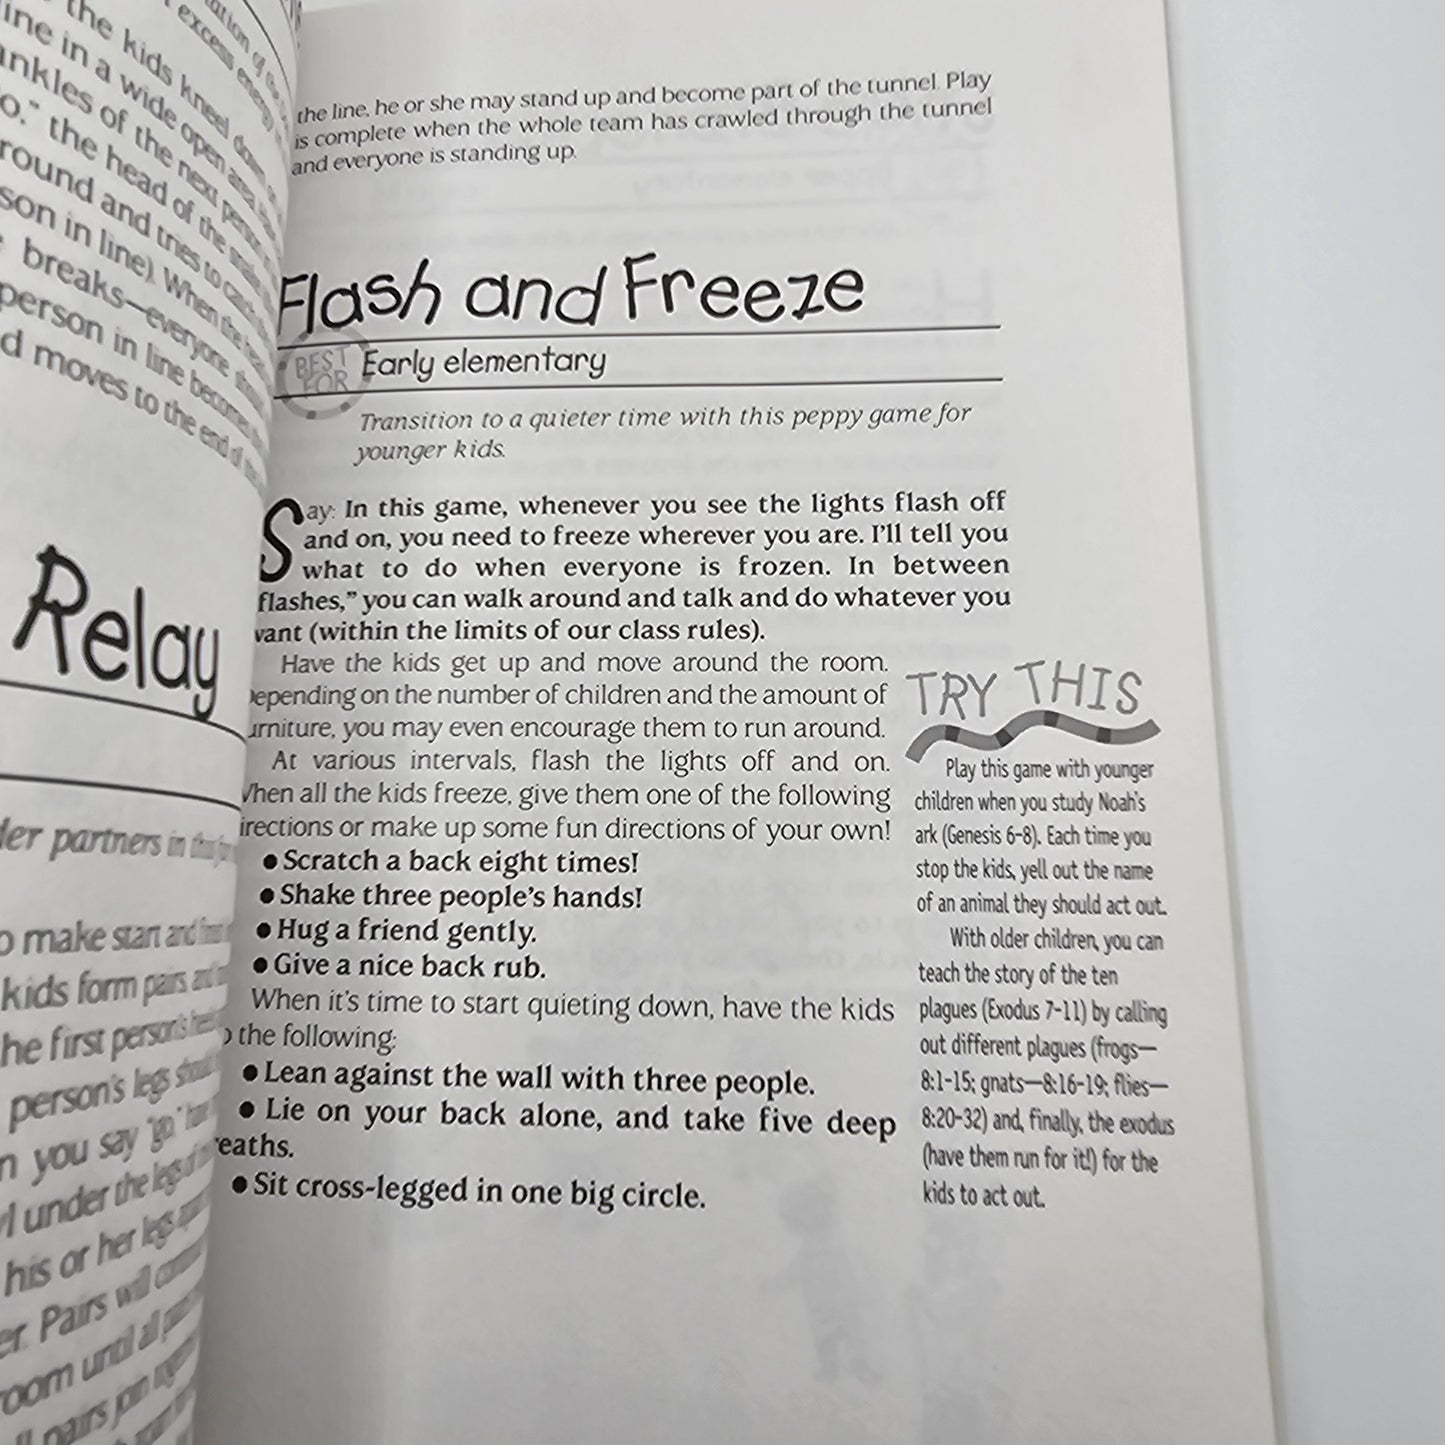 the kids kneel down
line in a wide open area
ankles of the next person
the head of the snake
round and tries to catch the
son in line). When the head
breaks—everyone
person in line becomes the
d moves to the end of the
Relay
der partners in
o make start and
kids form pairs and
he first person's
person's legs
n you say "go," have
l under the legs of
his or her legs
er. Pairs will
room until all
pairs join
the line, he or she may stand up and become part of the tunnel. Play
is complete when the whole team has crawled through the tunnel
and everyone is standing up.
Flash and Freeze
BEST FOR Early elementary
Transition to a quieter time with this peppy game for
younger kids.
Say: In this game, whenever you see the lights flash off
and on, you need to freeze wherever you are. I'll tell you
what to do when everyone is frozen. In between
flashes," you can walk around and talk and do whatever you
want (within the limits of our class rules).
Have the kids get up and move around the room.
Depending on the number of children and the amount of
urniture, you may even encourage them to run around.
At various intervals, flash the lights off and on.
When all the kids freeze, give them one of the following
irections or make up some fun directions of your own!
● Scratch a back eight times!
● Shake three people's hands!
● Hug a friend gently.
● Give a nice back rub.
When it's time to start quieting down, have the kids
o the following:
● Lean against the wall with three people.
● Lie on your back alone, and take five deep
reaths.
● Sit cross-legged in one big circle.
TRY THIS
Play this game with younger
children when you study Noah's
ark (Genesis 6-8). Each time you
stop the kids, yell out the name
of an animal they should act out.
With older children, you can
teach the story of the ten
plagues (Exodus 7-11) by calling
out different plagues (frogs—
8:1-15; gnats—8:16-19; flies—
8:20-32) and, finally, the exodus
(have them run for it!) for the
kids to act out.